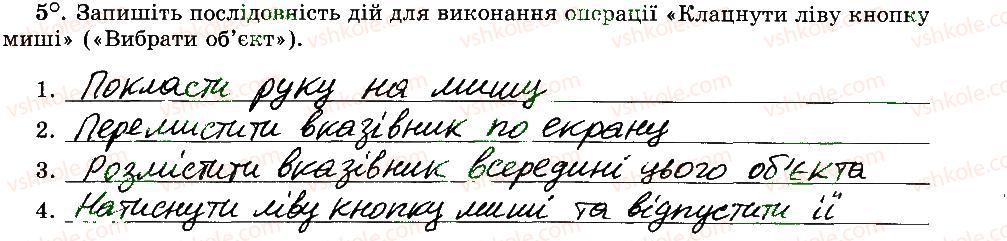 5°. Запишіть послідовність дій для виконання операції «Клацнути ліву кнопку
миші» («Вибрати об'єкт»).
1. Покласти руку на мишу
2. Перемистити вказівник по екрану
3. Розмістити вказівник всередині цього об'єкта
4. Натиснути ліву кнопку миші та відпустити її